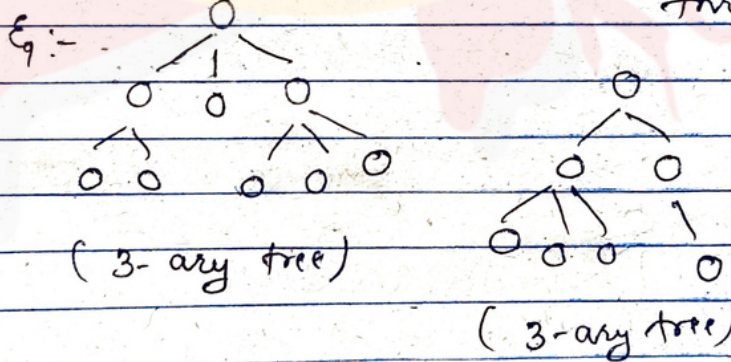 Eg:-
(3-ary tree)
(3-ary tree)